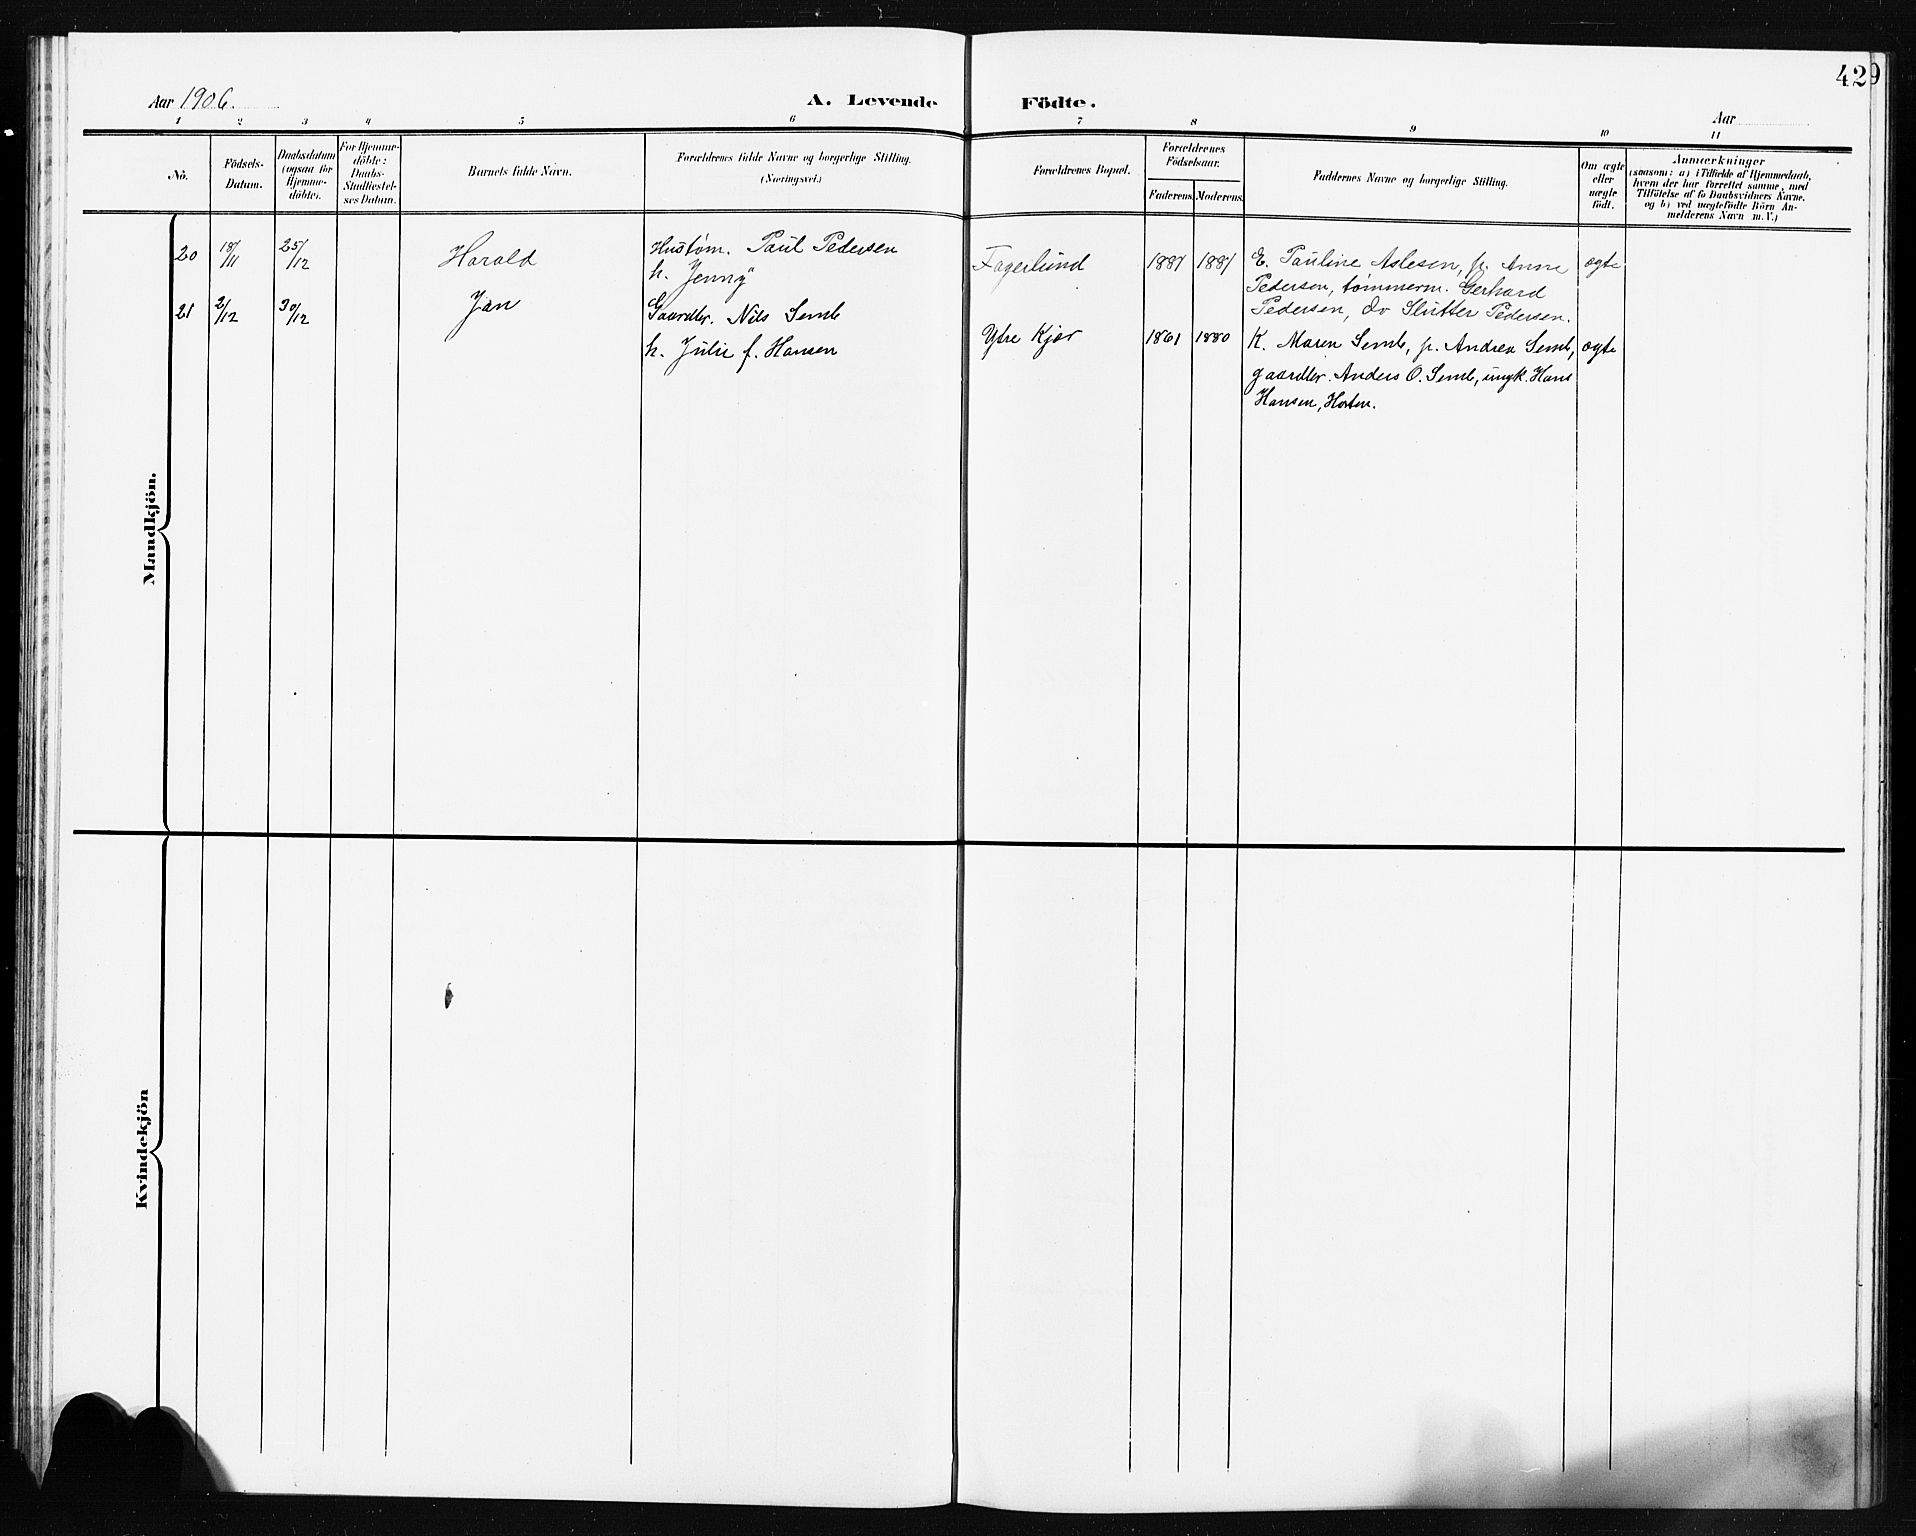 42
9
Aar 1906.
A. Levende Födte.
Aar
1 2 3 4 5 6 7 8 9 10 11
Nö.
Födsels-
Datum.
Daabsdatum
(ogsaa for
Hjemme-
döbte).
For Hjemme-
döbte:
Daabs-
Stadfæstel-
ses Datum.
Barnets fulde Navn.
Forældrenes fulde Navne og borgerlige Stilling.
(Næringsvei.)
Forældrenes Bopæl.
Forældrenes
Födselsaar.
Faderens. Moderens.
Faddernes Navne og borgerlige Stilling.
Om ægte
eller
uægte
födt.
Anmærkninger
(saasom: a) i Tilfælde af Hjemmedaab,
hvem der har forrettet samme, med
Tilföielse af to Daabsvidners Navne.
og b) ved uægtefödte Börn An-
melderens Navn m. V.)
Mandkjön.
20 18/11 25/12 Harald
Hustøm. Paul Pedersen
h. Jenny
Fagerlund
E. Pauline Aslesen, p. Anne
Pedersen, tømmerm. Gerhard
Pedersen, do Slutter Pedersen.
ægte
21 2/12 30/12 Jan
Gaardbr. Nils Semb
h. Julie f. Hansen
Ytre Kjær 1861 1880
K. Maren Semb, p. Andrea Semb,
gaardbr. Anders O. Semb, ungk. Hans
Hansen, Horten.
ægte
Kvindekjön